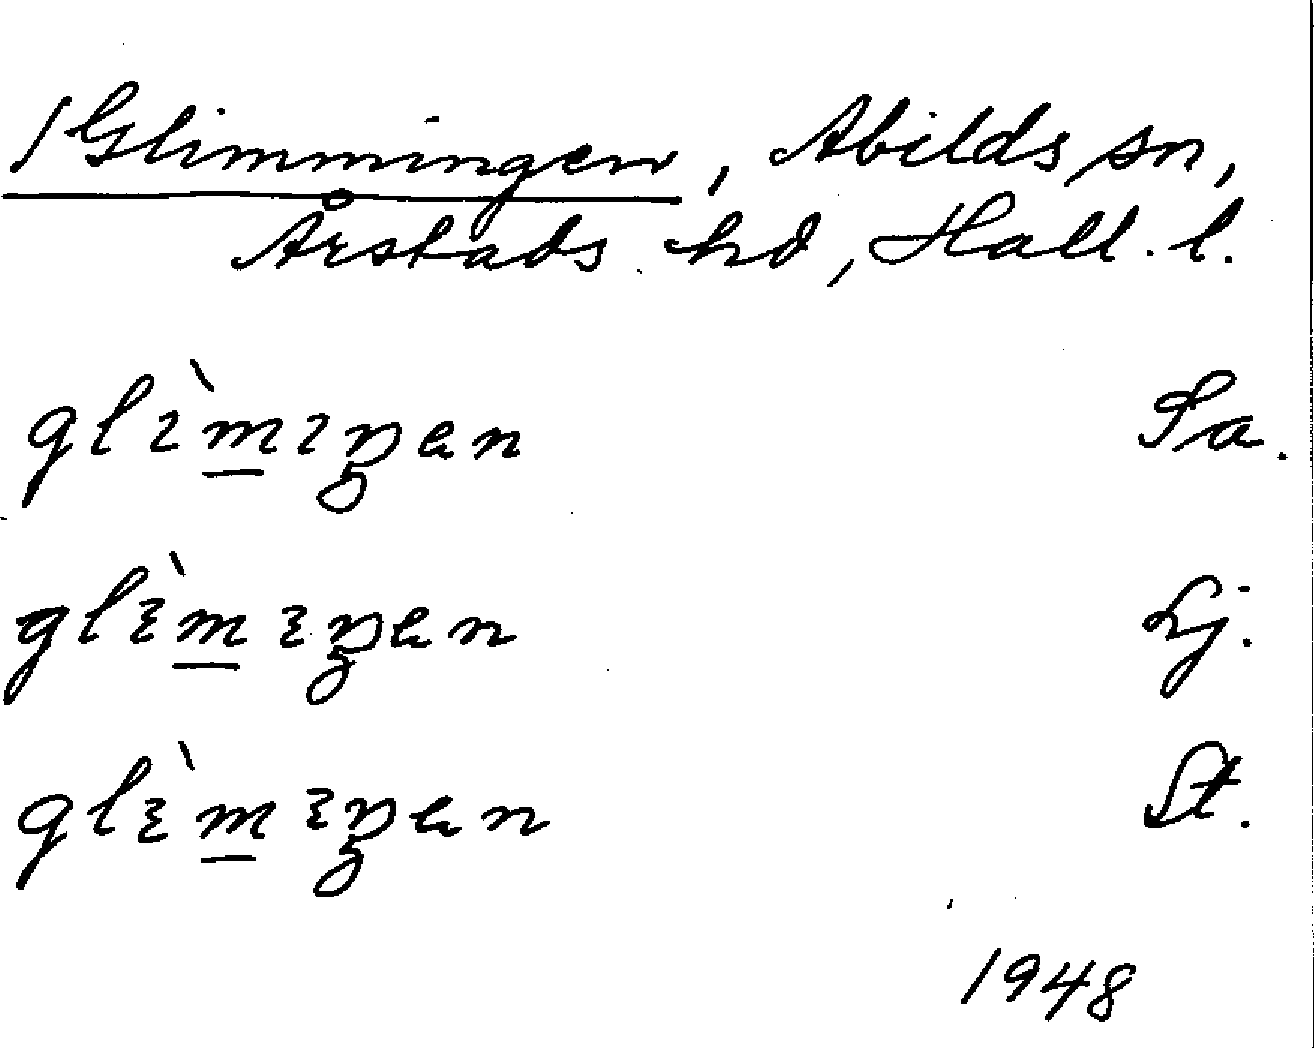 /Glimmingen, Abilds sn,
Årstads hd, Hall. l.
glɩ̀m̲ɩŋən Sa.
glɛ̀m̲ɛŋən Lj.
glɛ̀m̲ɛŋən St.
1948